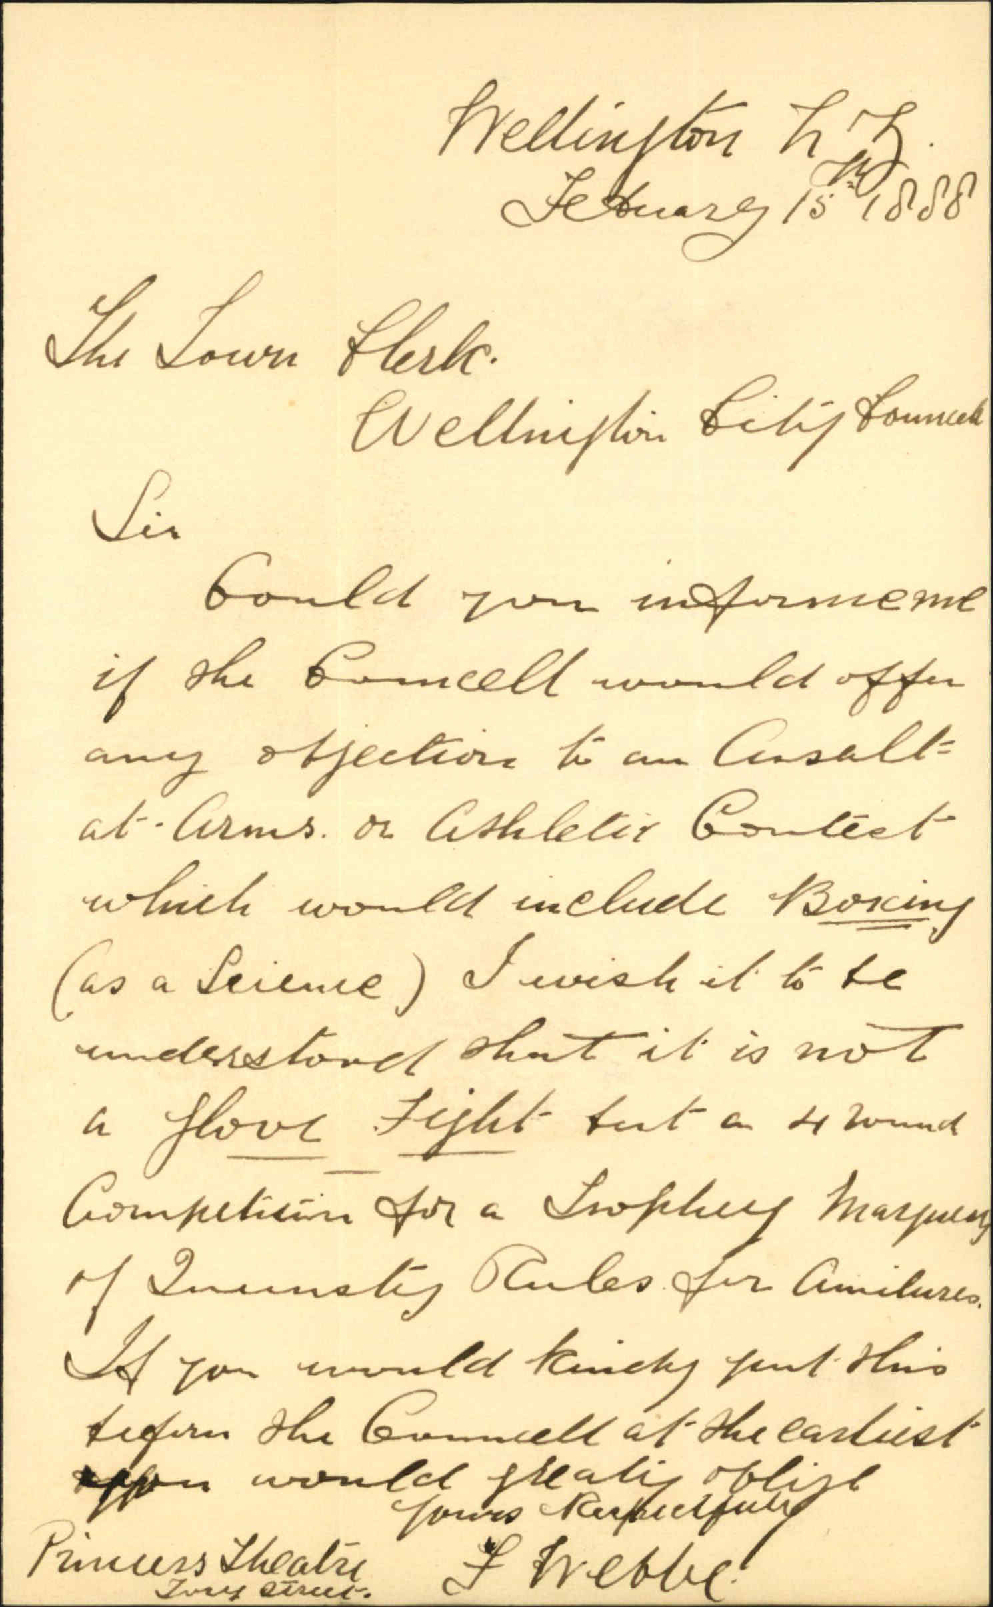 Wellington N Z.
Febuary 15th 1888
The Town Clerk.
Wellington City Councell
Sir
Could you informe me
if the Councell would offer
any objection to an Assalt=
at-Arms. or Athletic Contest
which would include Boxing
(as a Science) I wish it to be
understood that it is not
a Glove Fight but a 4 round
Competition for a Trophey Marquess
of Queensby Rules for Amitures.
If you would kindly put this
before the Councell at the earliest
you would greatly oblige
Yours Respectfully
F Webbe.
Princess Theatre
Tory Street.